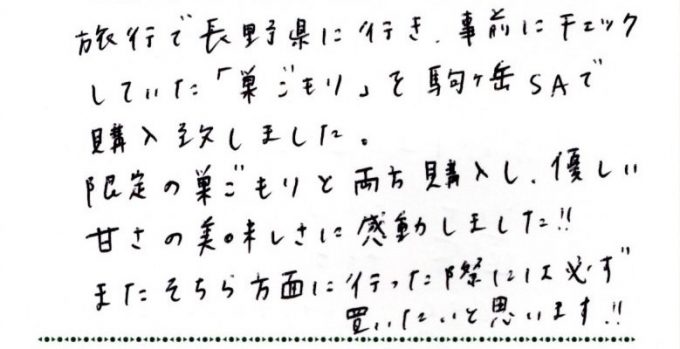 旅行で長野県に行き、事前にチェック
していた「巣ごもり」を駒ヶ岳SAで
購入致しました。
限定の巣ごもりと両方購入し、優しい
甘さの美味しさに感動しました!!
またそちら方面に行った際には必ず
買いたいと思います!!